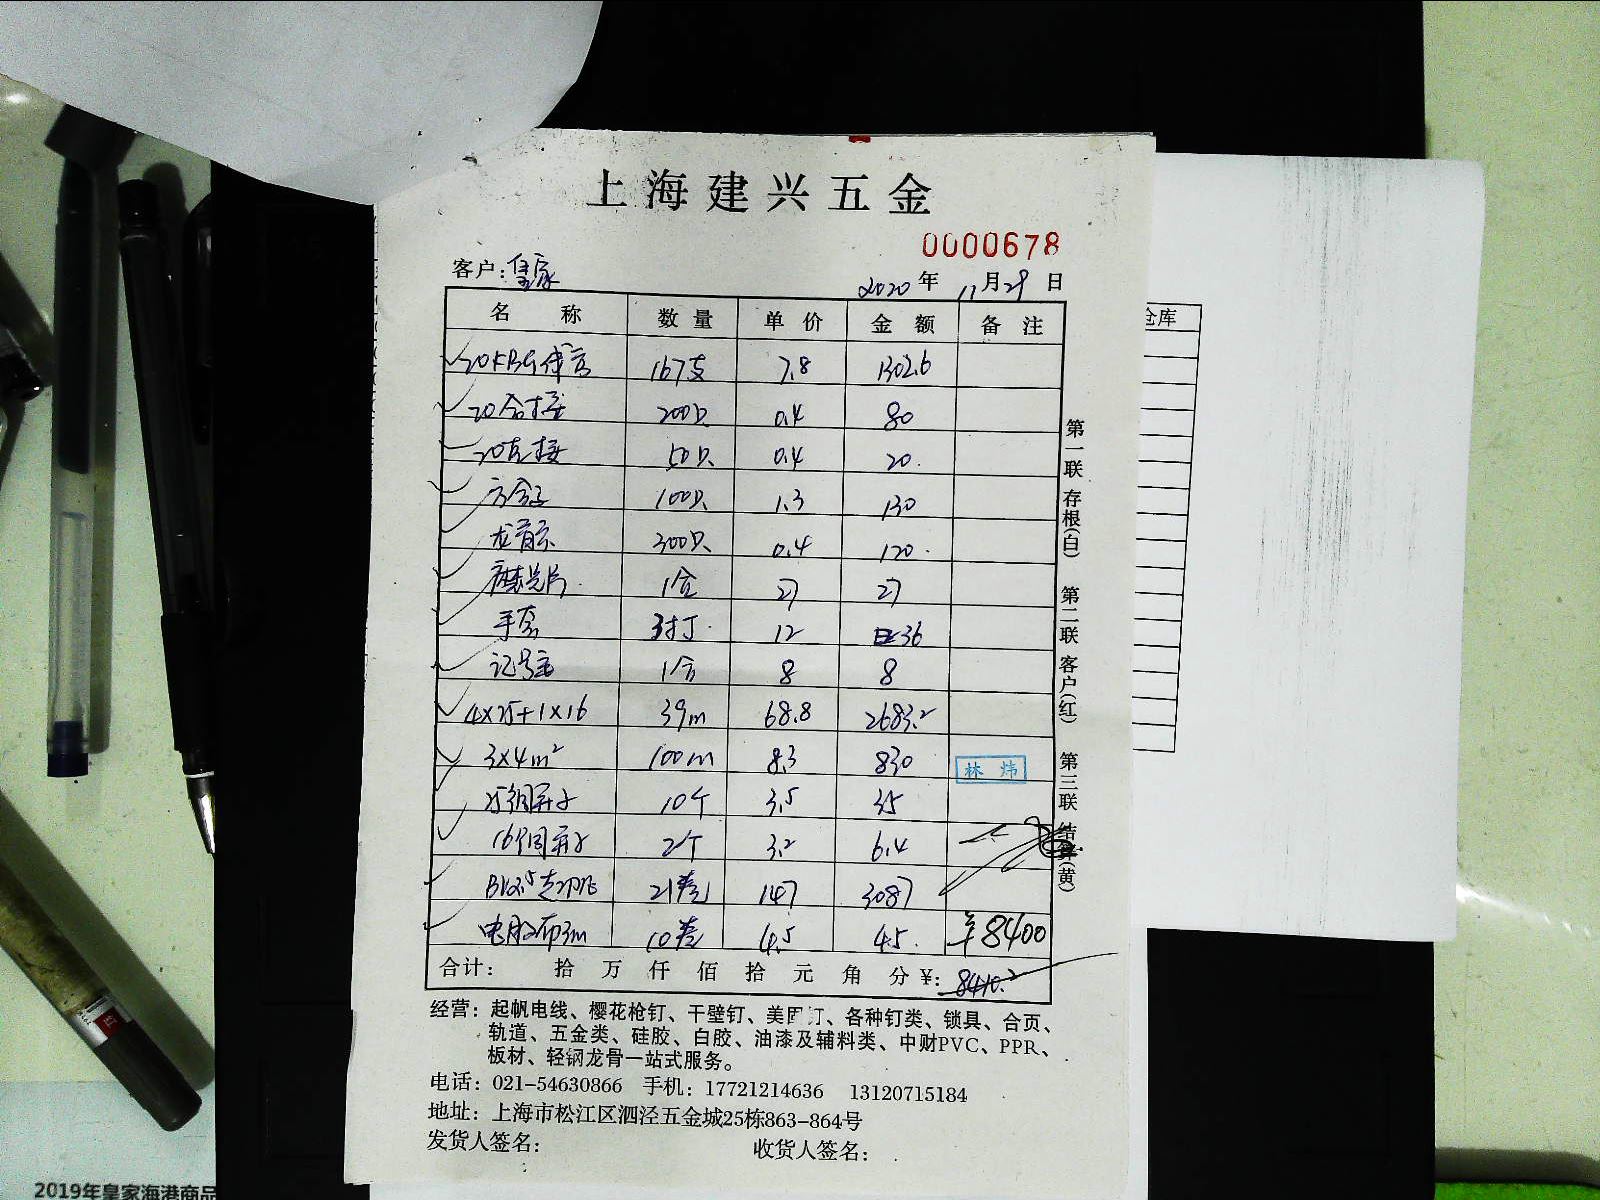 上海建兴五金
0000678
客户：皇家 2020年11月29日
名称 数量 单价 金额 备注
167支 7.8 1302.6
20合接 200只 0.4 80
20直接 50只 0.4 20.
方合子 100只 1.3 130
300只 0.4 120.
1合 27 27
手套 3打 12 36
记号笔 1合 8 8
4×25+1×16 39m 68.8 2683.2
3×4m² 100m 8.3 830
林炜
25铜鼻子 10个 3.5 35
16铜鼻子 2个 3.2 6.4
21卷 147 3087
10卷 4.5 45. ¥8400
合计： 拾 万 仟 佰 拾 元 角 分 ¥: 8410.2
第一联 存根(白) 第二联 客户(红) 第三联 结算(黄)
经营：起帆电线、樱花枪钉、干壁钉、美固钉、各种钉类、锁具、合页、
轨道、五金类、硅胶、白胶、油漆及辅料类、中财PVC、PPR、
板材、轻钢龙骨一站式服务。
电话：021-54630866 手机：17721214636 13120715184
地址：上海市松江区泗泾五金城25栋863-864号
发货人签名： 收货人签名：
仓库
2019年皇家海港商品